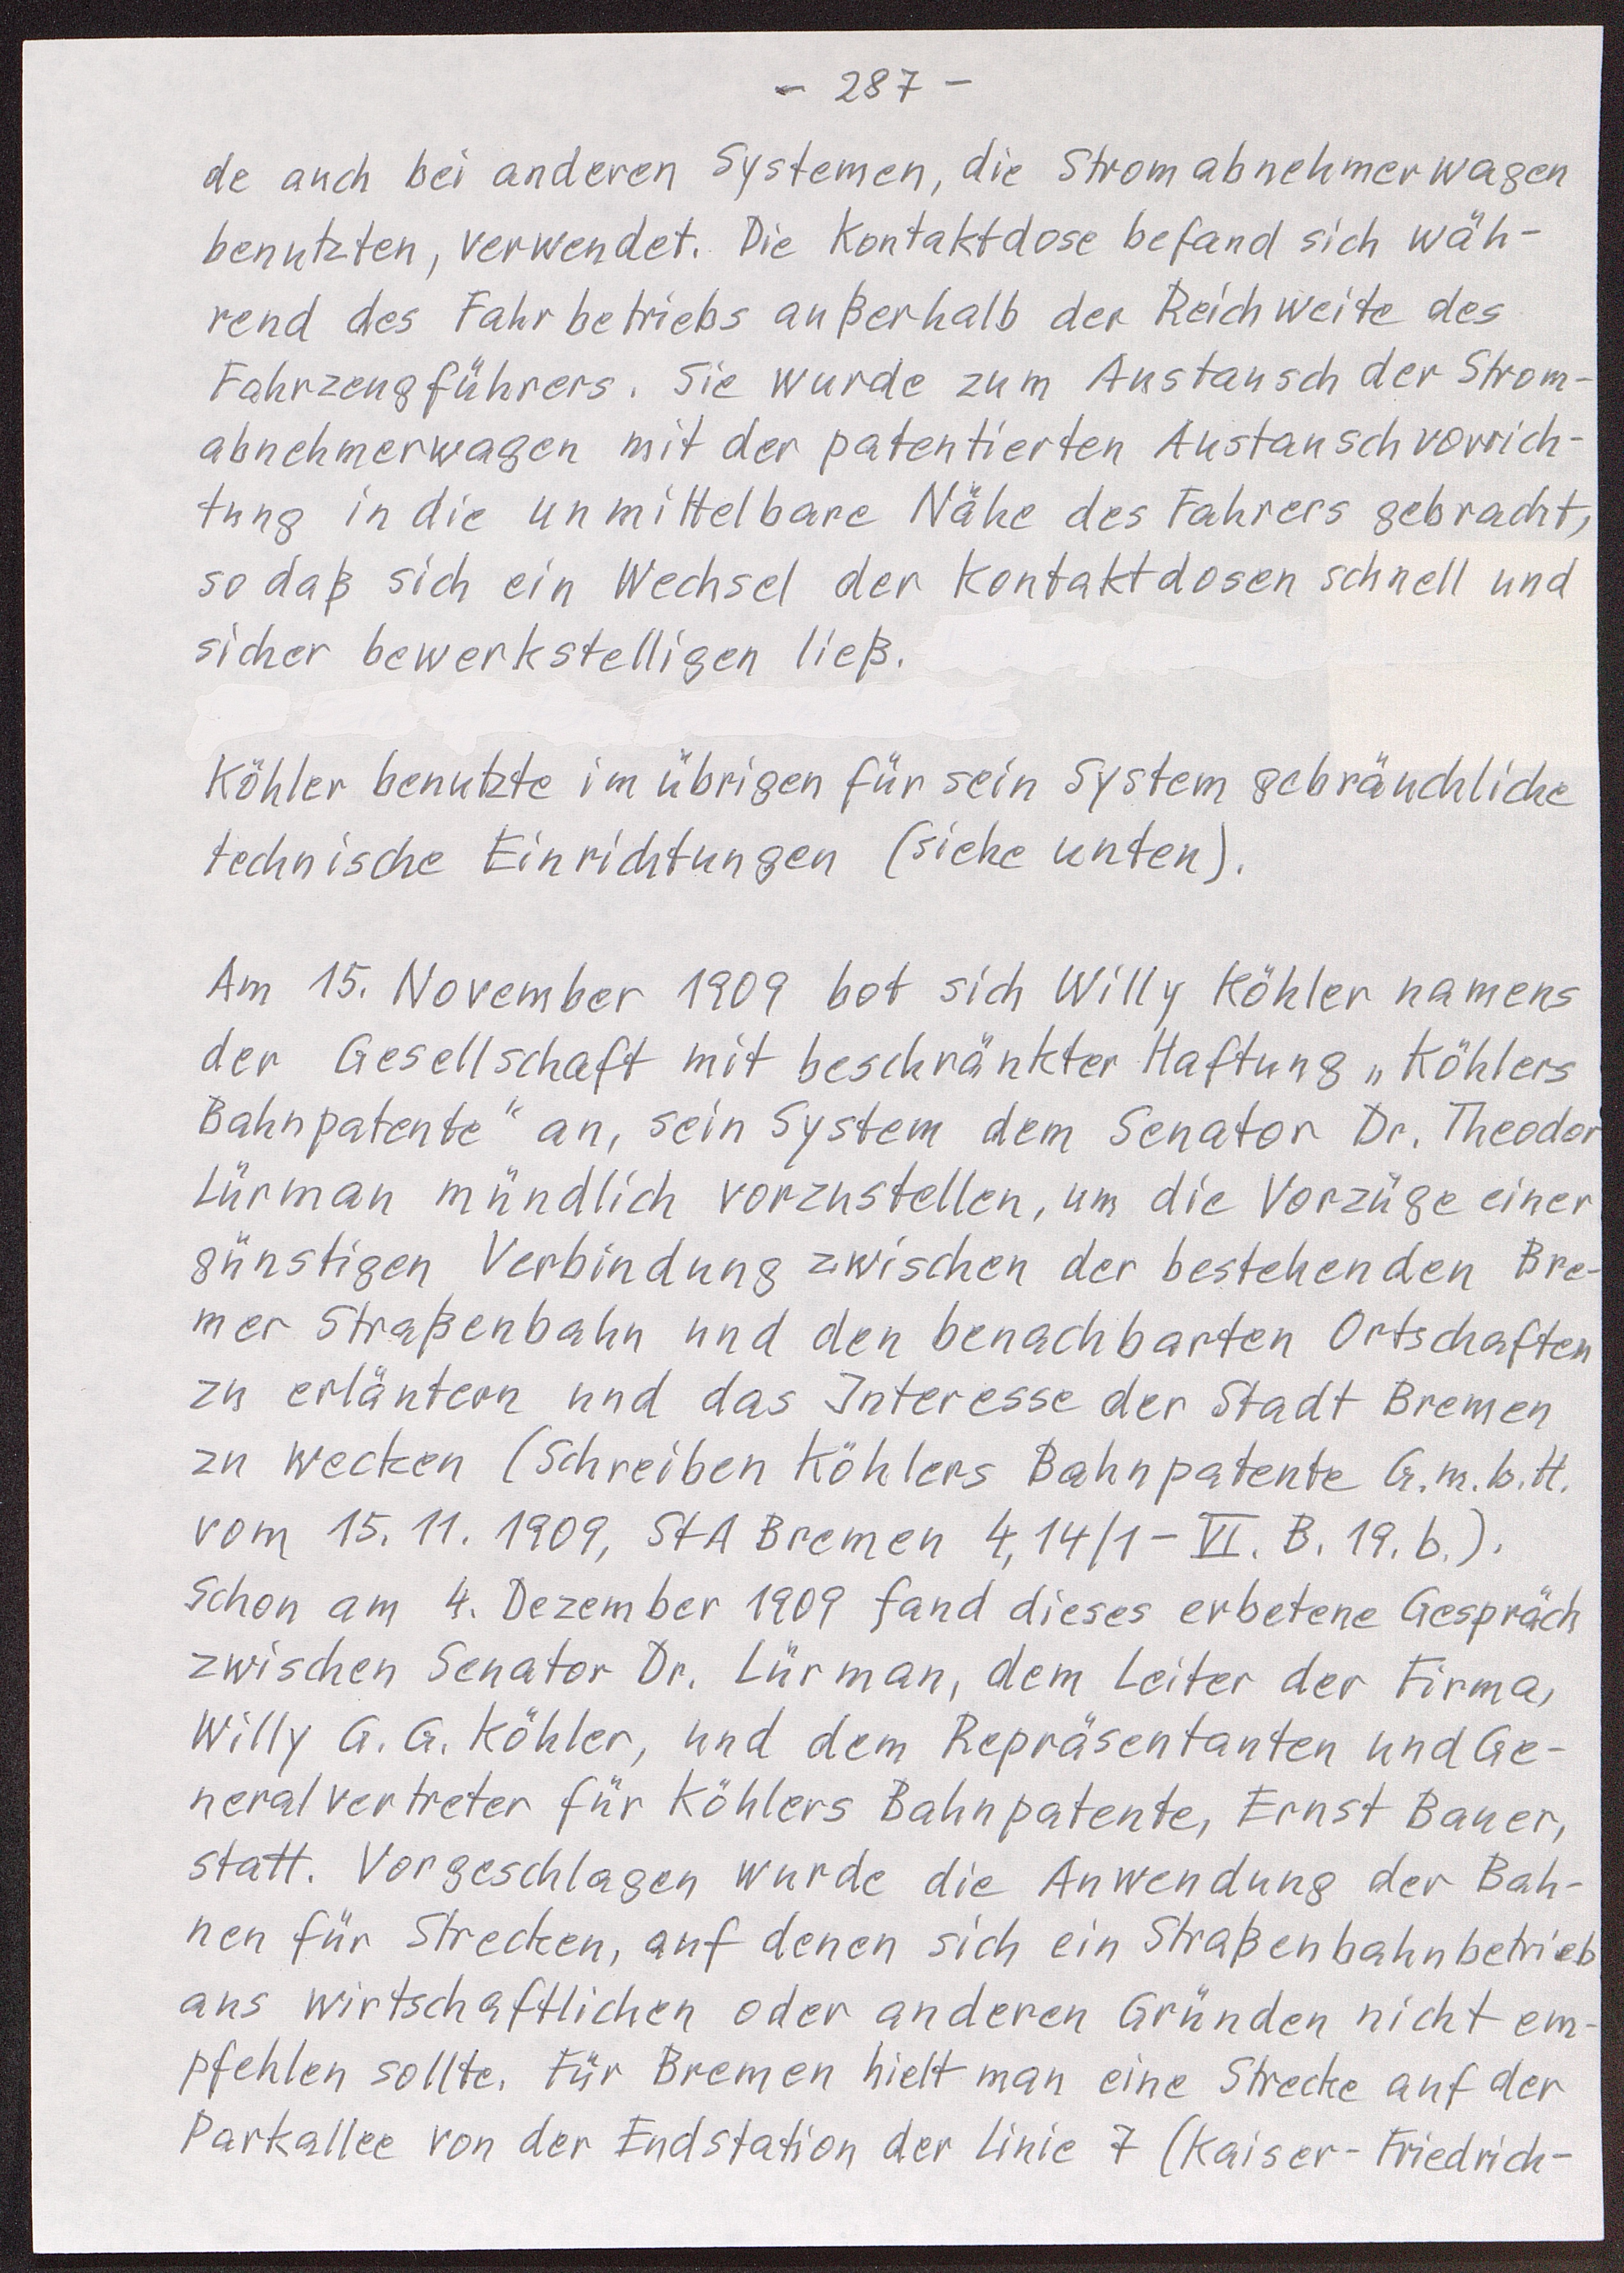 - 287 -
de auch bei anderen Systemen, die Stromabnehmerwagen
benutzten, verwendet. Die Kontaktdose befand sich wäh-
rend des Fahrbetriebs außerhalb der Reichweite des
Fahrzeugführers. Sie wurde zum Austausch der Strom-
abnehmerwagen mit der patentierten Austauschvorrich-
tung in die unmittelbare Nähe des Fahrers gebracht,
so daß sich ein Wechsel der Kontaktdosen schnell und
sicher bewerkstelligen ließ.
Köhler benutzte im übrigen für sein System gebräuchliche
technische Einrichtungen (siehe unten).
Am 15. November 1909 bot sich Willy Köhler namens
der Gesellschaft mit beschränkter Haftung „Köhlers
Bahnpatente“ an, sein System dem Senator Dr. Theodor
Lürman mündlich vorzustellen, um die Vorzüge einer
günstigen Verbindung zwischen der bestehenden Bre-
mer Straßenbahn und den benachbarten Ortschaften
zu erläutern und das Interesse der Stadt Bremen
zu wecken (Schreiben Köhlers Bahnpatente G.m.b.H.
vom 15. 11. 1909, StA Bremen 4,14/1 - VI. B. 19. b.).
Schon am 4. Dezember 1909 fand dieses erbetene Gespräch
zwischen Senator Dr. Lürman, dem Leiter der Firma,
Willy G. G. Köhler, und dem Repräsentanten und Ge-
neralvertreter für Köhlers Bahnpatente, Ernst Bauer,
statt. Vorgeschlagen wurde die Anwendung der Bah-
nen für Strecken, auf denen sich ein Straßenbahnbetrieb
aus wirtschaftlichen oder anderen Gründen nicht em-
pfehlen sollte. Für Bremen hielt man eine Strecke auf der
Parkallee von der Endstation der Linie 7 (Kaiser-Friedrich-